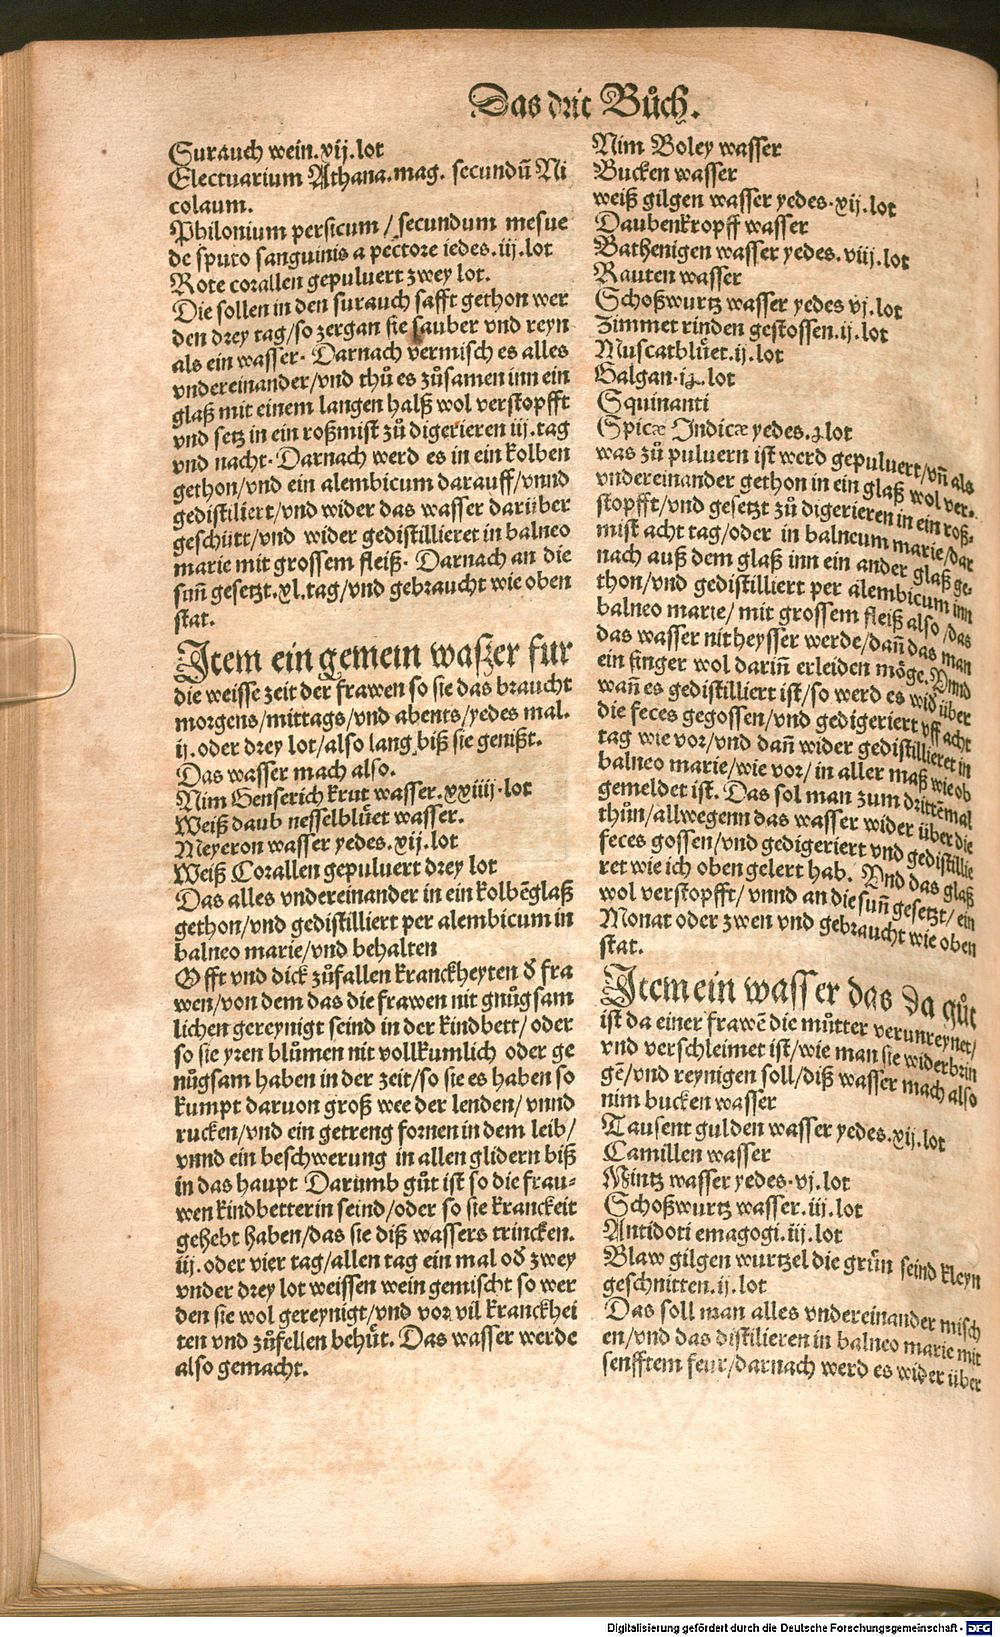 Das drit Bůch.
Surauch wein.xij.lot
Electuarium Athana.mag. secundū Ni
colaum.
Philonium persicum / secundum mesue
de sputo sanguinis a pectore iedes.iij.lot
Rote corallen gepuluert zwey lot.
Die sollen in den surauch safft gethon wer
den drey tag/so zergan sie sauber vnd reyn
als ein wasser. Darnach vermisch es alles
vndereinander/vnd thů es zůsamen inn ein
glaß mit einem langen halß wol verstopfft
vnd setz in ein roßmist zů digerieren iij.tag
vnd nacht. Darnach werd es in ein kolben
gethon/vnd ein alembicum darauff/vnnd
gedistiliert/vnd wider das wasser darüber
geschütt/vnd wider gedistillieret in balneo
marie mit grossem fleiß. Darnach an die
sun̄ gesetzt.xl.tag/vnd gebraucht wie oben
stat.
Item ein gemein waszer fur
die weisse zeit der frawen so sie das braucht
morgens/mittags/vnd abents/yedes mal.
ij.oder drey lot/also lang biß sie genißt.
Das wasser mach also.
Nim Genserich krut wasser.xxiiij.lot
Weiß daub nesselblůet wasser.
Meyeron wasser yedes.xij.lot
Weiß Corallen gepuluert drey lot
Das alles vndereinander in ein kolbēglaß
gethon/vnd gedistilliert per alembicum in
balneo marie/vnd behalten
Offt vnd dick zůfallen kranckheyten ð fra
wen/von dem das die frawen nit gnůgsam
lichen gereynigt seind in der kindbett/ oder
so sie yren blůmen nit vollkumlich oder ge
nůgsam haben in der zeit/so sie es haben so
kumpt daruon groß wee der lenden/ vnnd
rucken/vnd ein getreng fornen in dem leib/
vnnd ein beschwerung in allen glidern biß
in das haupt Darumb gůt ist so die frau-
wen kindbetterin seind/oder so sie kranckeit
gehebt haben/das sie diß wassers trincken.
iij.oder vier tag/allen tag ein mal oð zwey
vnder drey lot weissen wein gemischt so wer
den sie wol gereynigt/vnd vor vil kranckhei
ten vnd zůfellen behůt. Das wasser werde
also gemacht.
Nim Boley wasser
Bucken wasser
weiß gilgen wasser yedes.xij.lot
Daubenkropff wasser
Bathenigen wasser yedes.viij.lot
Rauten wasser
Schoßwurtz wasser yedes vj.lot
Zimmet rinden gestossen.ij.lot
Muscatblůet.ij.lot
Galgan.lot
Squinanti
Spicæ Indicæ yedes.lot
was zů puluern ist werd gepuluert/vn̄ als
vndereinander gethon in ein glaß wol ver-
stopfft/vnd gesetzt zů digerieren in ein roß-
mist acht tag/oder in balneum marie/dar
nach auß dem glaß inn ein ander glaß ge-
thon/vnd gedistilliert per alembicum inn
balneo marie/ mit grossem fleiß also /das
das wasser nit heysser werde/dan̄ das man
ein finger wol darin̄ erleiden möge. Vnnd
wan̄ es gedistilliert ist/so werd es wid über
die feces gegossen/vnd gedigeriert vff acht
tag wie vor/vnd dan̄ wider gedistillieret in
balneo marie/wie vor/in aller maß wie ob
gemeldet ist. Das sol man zum drittēmal
thůn/allwegenn das wasser wider über die
feces gossen/vnd gedigeriert vnd gedistillie
ret wie ich oben gelert hab. Vnd das glaß
wol verstopfft/ vnnd an die sun̄ gesetzt/ ein
Monat oder zwen vnd gebraucht wie oben
stat.
Item ein wasser das da gůt
ist da einer frawē die můtter verunreynet/
vnd verschleimet ist/wie man sie widerbrin
gē/vnd reynigen soll/diß wasser mach also
nim bucken wasser
Tausent gulden wasser yedes.xij.lot
Camillen wasser
Mintz wasser yedes.vj.lot
Schoßwurtz wasser.iij.lot
Antidoti emagogi.iij.lot
Blaw gilgen wurtzel die grůn seind kleyn
geschnitten.ij.lot
Das soll man alles vndereinander misch
en/vnd das distilieren in balneo marie mit
senfftem feur/darnach werd es wider über
Digitalisierung gefördert durch die Deutsche Forschungsgemeinschaft - DFG